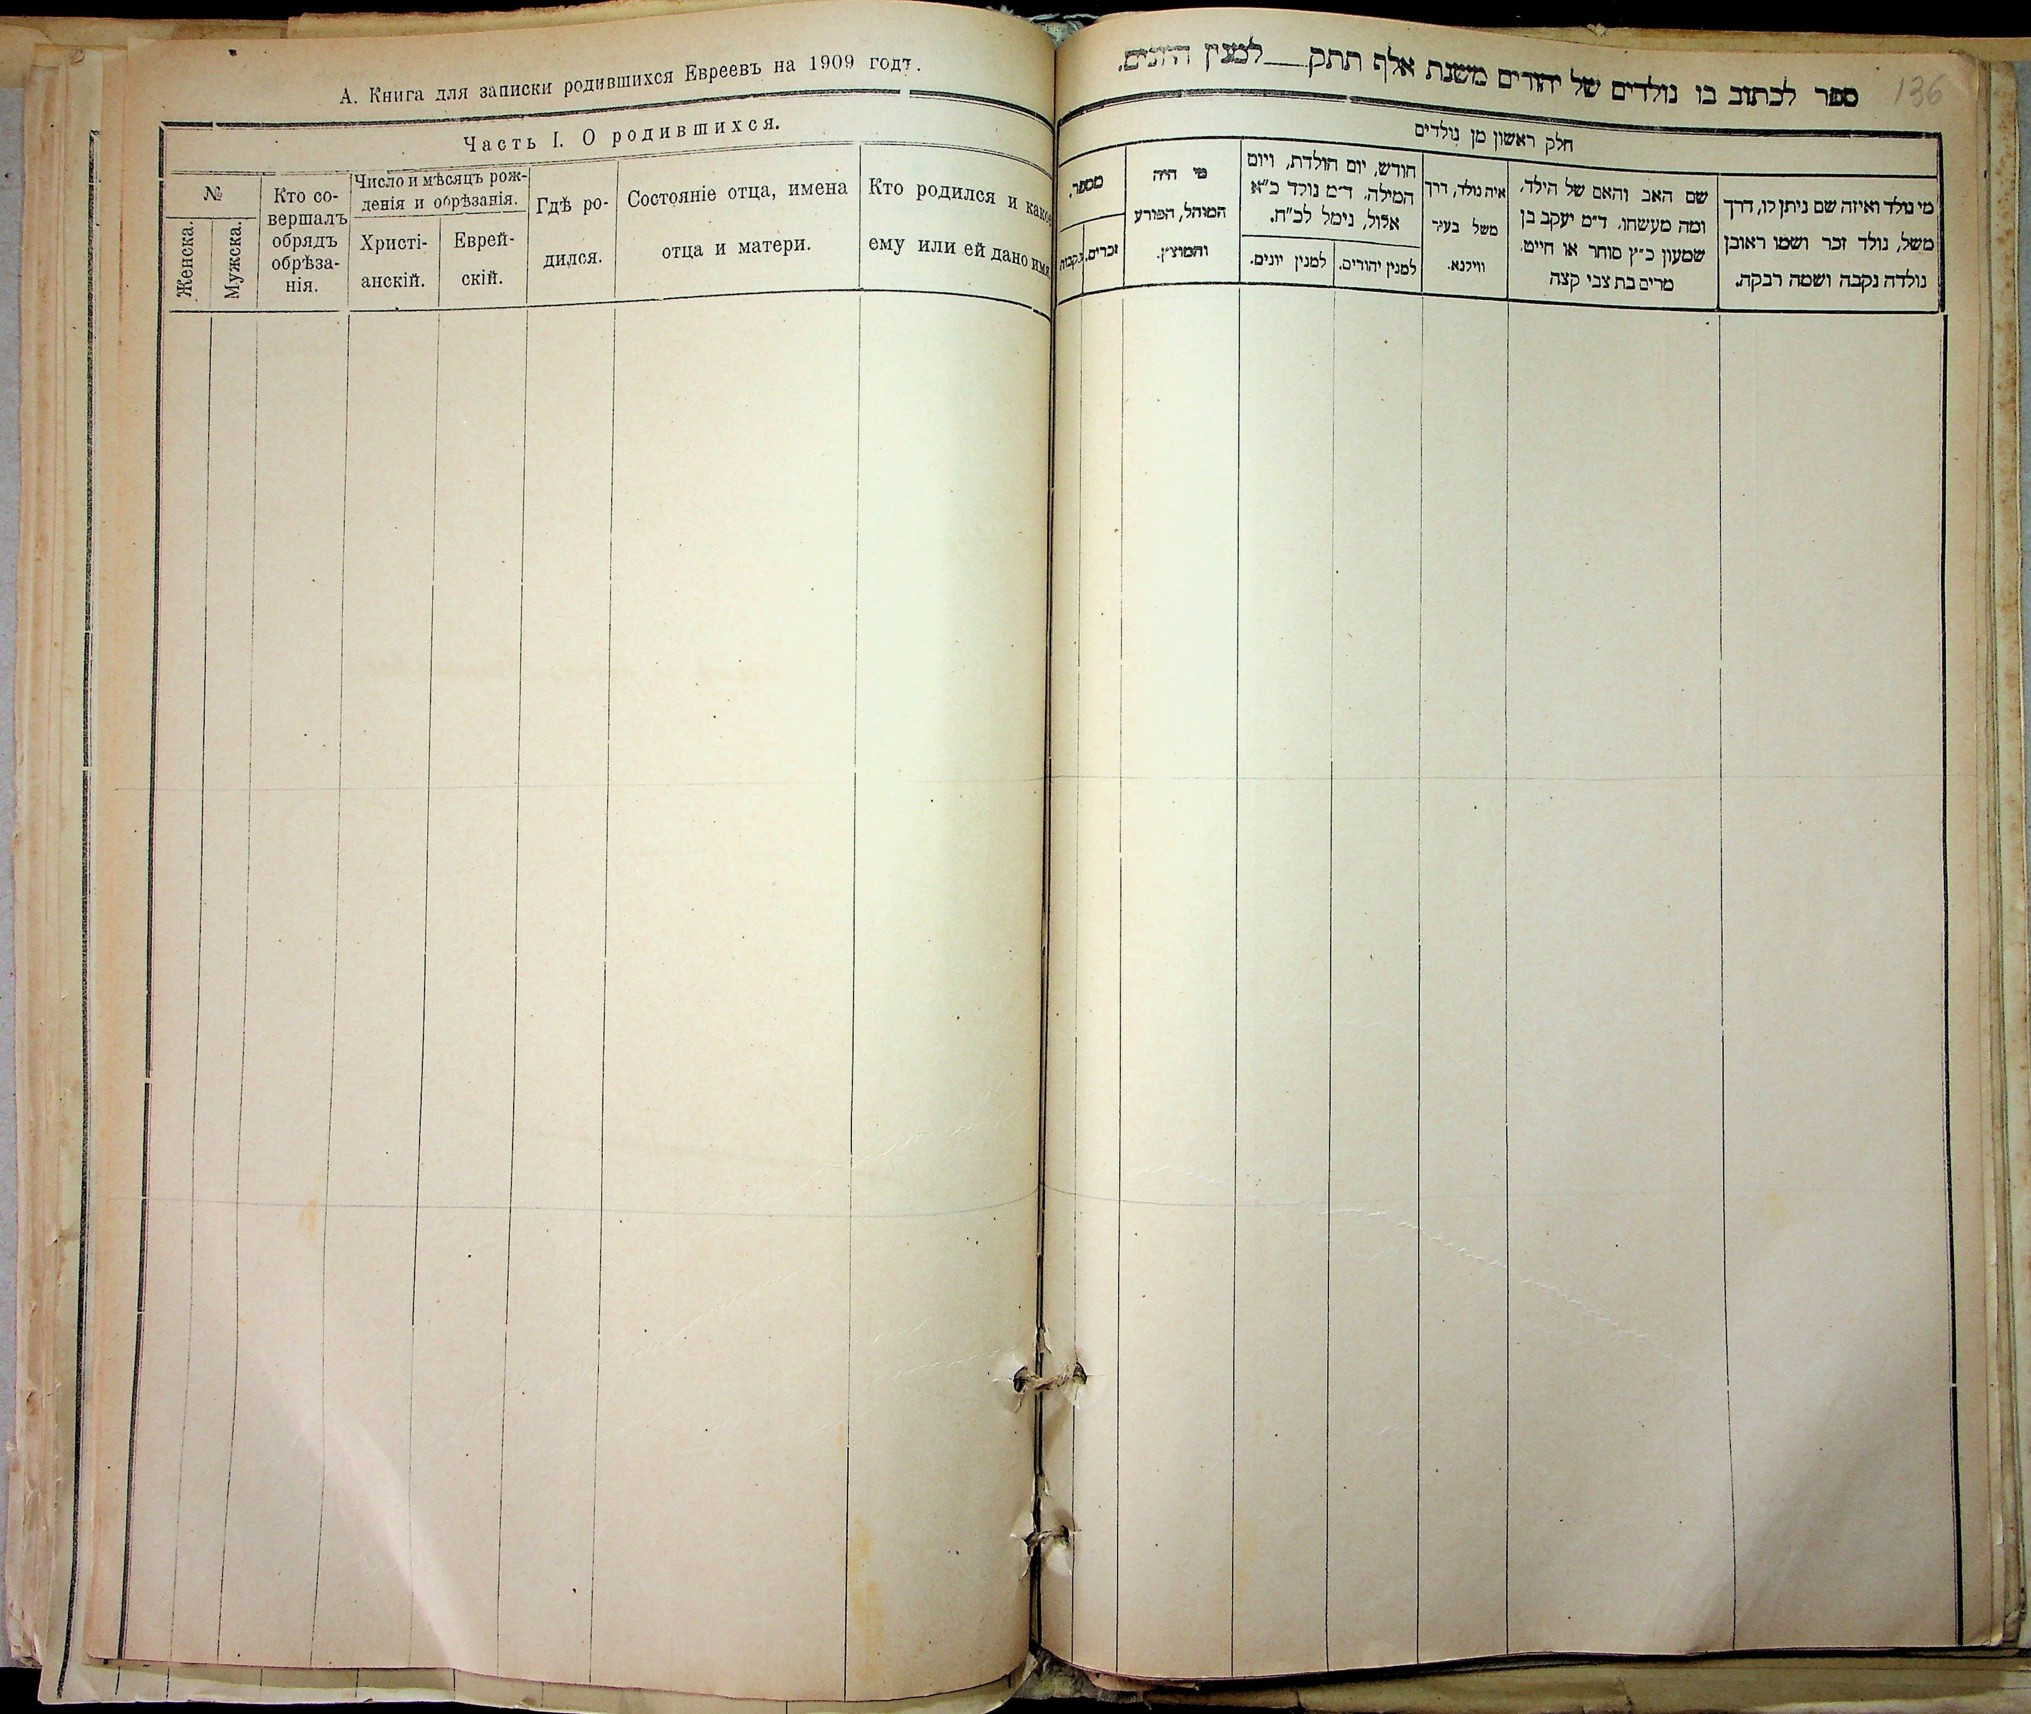 А. Книга для записки родившихся Евреевъ на 1909 годъ.
Часть I. О родившихся.
№
Женска.
Мужска.
Кто со-
вершалъ
обрядъ
обрѣза-
нія.
Число и мѣсяцъ рож-
денія и обрѣзанія.
Христі-
анскій.
Еврей-
скій.
Гдѣ ро-
дился.
Состояніе отца, имена
отца и матери.
Кто родился и какое
ему или ей дано имя
136
ספר לכתוב בו נולדים של יהודים משנת אלף תתק___למנין היונים.
חלק ראשון מן נולדים
מי נולד ואיזה שם ניתן לו, דרך
משל, נולד זכר ושמו ראובן
נולדה נקבה ושמה רבקה.
שם האב והאם של הילד,
ומה מעשהו. ד״מ יעקב בן
שמעון כ״ץ סוחר או חייט.
מרים בת צבי קצה
איה נולד, דרך
משל בעיר
ווילנא.
חודש, יום הולדת, ויום
המילה. ד״מ נולד כ״א
אלול, נימל לכ״ח.
למנין יהודים.
למנין יונים.
מי היה
המוהל, הפורע
והמוצץ.
מספר.
זכרים.
נקבות